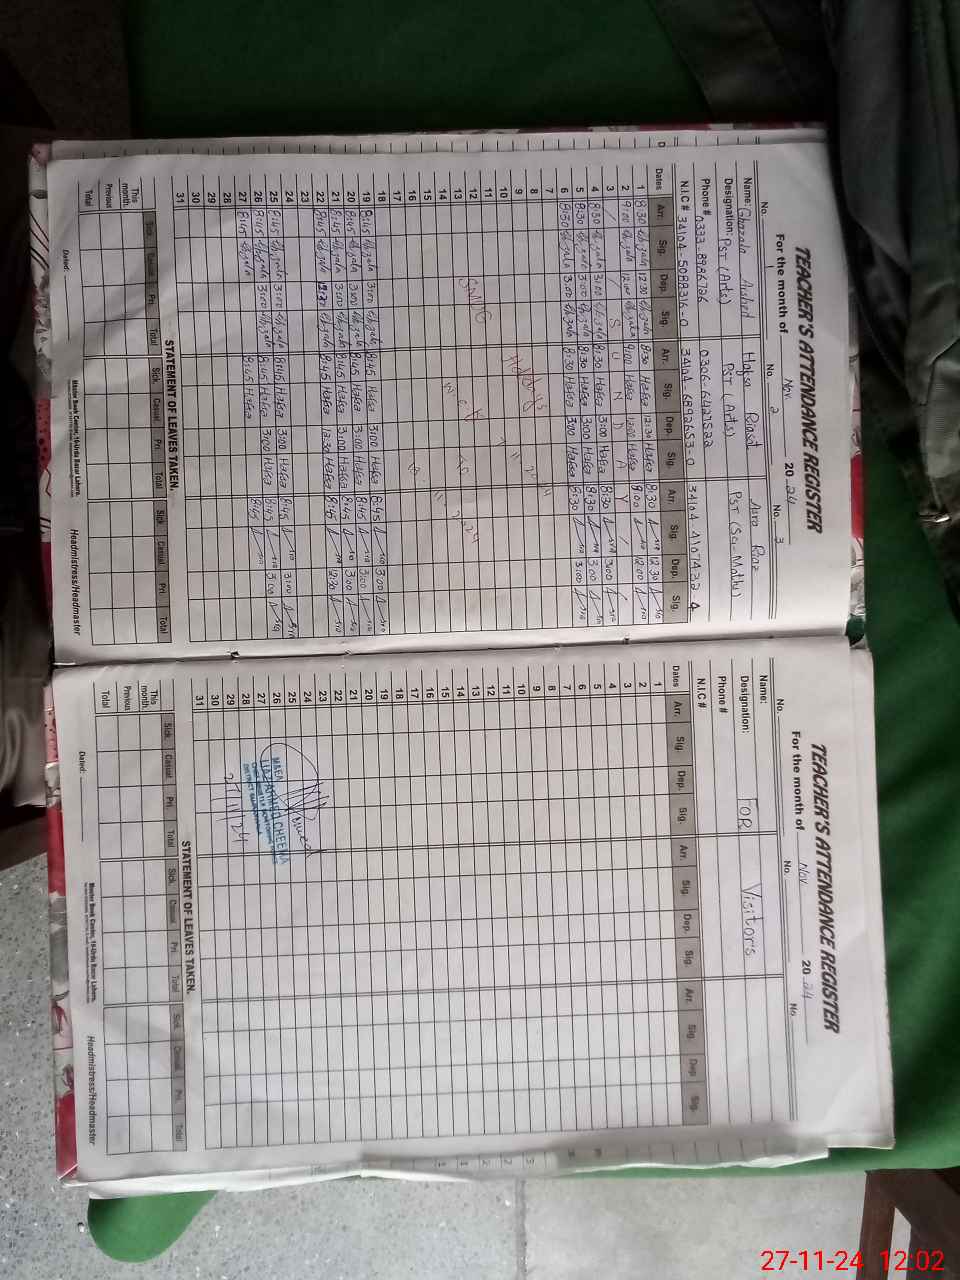 TEACHER'S ATTENDANCE REGISTER
For the month of Nov. 20 24
No. No. 2 No. 3
Name: Ghazala Arshad Hafsa Riasat Asra Riaz
Designation: PST (Arts) PST (Arts) PST (Sci-Maths)
Phone # 0333-8986726 0306-6427522
N.I.C # 34104-5088316-0 34104-6892653-0 34104-4107432-4
Dates Arr. Sig. Dep. Sig. Arr. Sig. Dep. Sig. Arr. Sig. Dep. Sig.
1 8:30 Ghazala 12:30 Ghazala 8:30 Hafsa 12:30 Hafsa 8:30 12:30
2 9:00 Ghazala 12:00 Ghazala 9:00 Hafsa 12:00 Hafsa 9:00 12:00
3 / / S U N D A Y /
4 8:30 Ghazala 3:00 Ghazala 8:30 Hafsa 3:00 Hafsa 8:30 3:00
5 8:30 Ghazala 3:00 Ghazala 8:30 Hafsa 3:00 Hafsa 8:30 3:00
6 8:30 Ghazala 3:00 Ghazala 8:30 Hafsa 3:00 Hafsa 8:30 3:00
7
8
9
10
11
12
13
14
15
16
17
SMOG
Holidays
2024
2024
18 8:45 Ghazala 3:00 Ghazala 8:45 Hafsa 3:00 Hafsa 8:45 3:00
19 8:45 Ghazala 3:00 Ghazala 8:45 Hafsa 3:00 Hafsa 8:45 3:00
20 8:45 Ghazala 3:00 Ghazala 8:45 Hafsa 3:00 Hafsa 8:45 3:00
21 8:45 Ghazala 3:00 Ghazala 8:45 Hafsa 3:00 Hafsa 8:45
22 8:45 Ghazala 12:30 Ghazala 8:45 Hafsa 12:30 Hafsa 8:45 12:30
23
24
25 8:45 Ghazala 3:00 Ghazala 8:45 Hafsa 3:00 Hafsa 8:45 3:00
26 8:45 Ghazala 3:00 Ghazala 8:45 Hafsa 3:00 Hafsa 8:45 3:00
27 8:45 Ghazala 8:45 Hafsa 8:45
28
29
30
31
STATEMENT OF LEAVES TAKEN.
Sick Casual Pri. Total Sick. Casual Pri Total Sick Casual Pri Total
This month.
Previous
Total
Dated:
Master Book Center, 16-Urdu Bazar Lahore.
Headmistress/Headmaster
TEACHER'S ATTENDANCE REGISTER
For the month of Nov 20 24
No. No. No.
Name:
Designation: FOR Visitors
Phone #
N.I.C #
Dates Arr. Sig. Dep. Sig. Arr. Sig. Dep. Sig. Arr. Sig. Dep Sig.
1
2
3
4
5
6
7
8
9
10
11
12
13
14
15
16
17
18
19
20
21
22
23
24
25
26
27
28
29
30
31
MAEA
CHEEMA
27/11/24
STATEMENT OF LEAVES TAKEN.
Sick Casual Pri. Total Sick. Casual Pri Total Sick Casual Pri Total
This month.
Previous
Total
Dated:
Master Book Center, 16-Urdu Bazar Lahore.
Headmistress/Headmaster
27-11-24 12:02